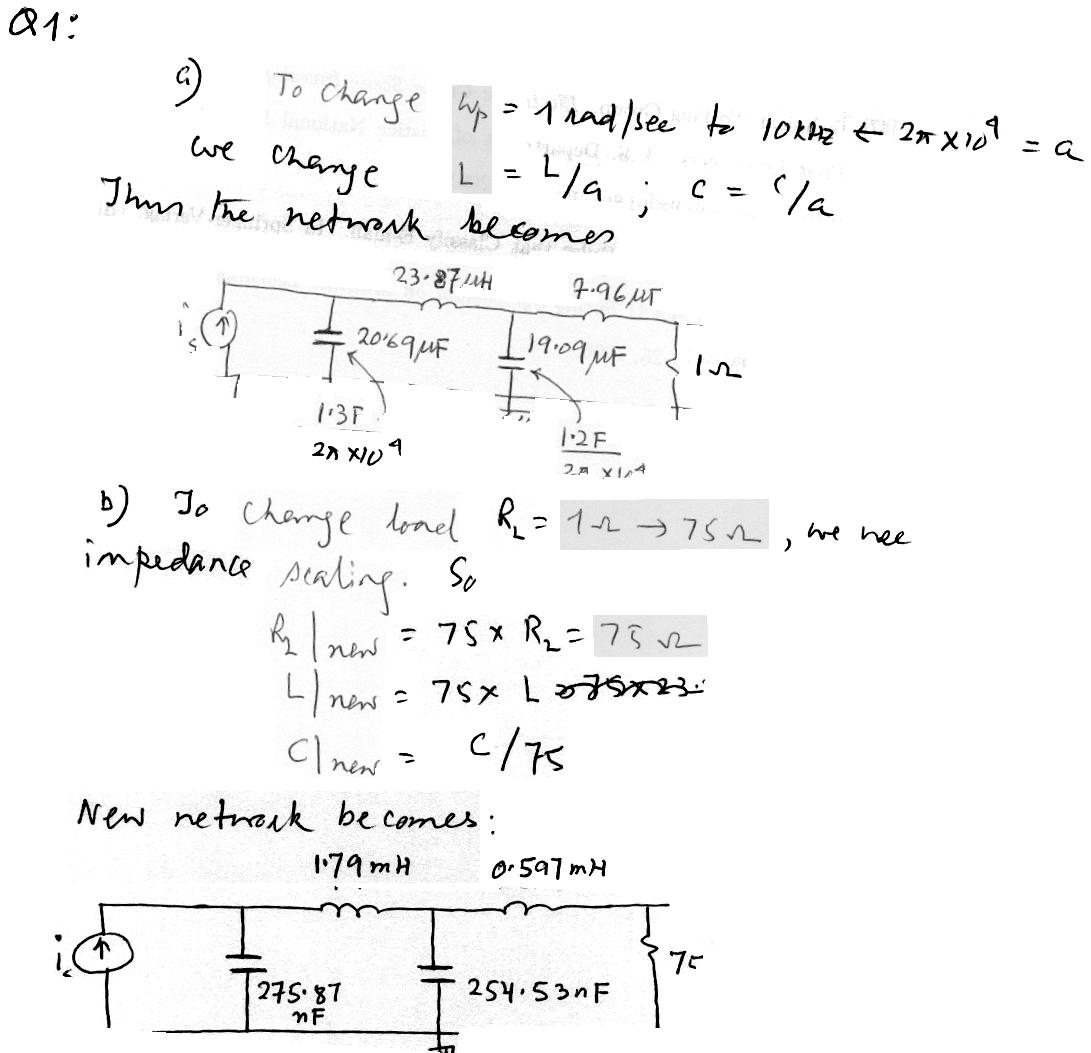 Q1:
a) To change ωp = 1 rad/sec to 10 kHz ← 2π × 10⁴ = a
we change L = L/a ; C = C/a
Thus the network becomes
23.87 μH 7.96 μF
i_s 20.69 μF 19.09 μF 1Ω
1.3F 1.2F
2π × 10⁴ 2π × 10⁴
b) To change load R_L = 1Ω → 75Ω, we nee
impedance scaling. So
R_L | new = 75 × R_L = 75 Ω
L | new = 75 × L
C | new = C/75
New network becomes:
1.79 mH 0.597 mH
i_s 75
275.87 254.53 nF
nF